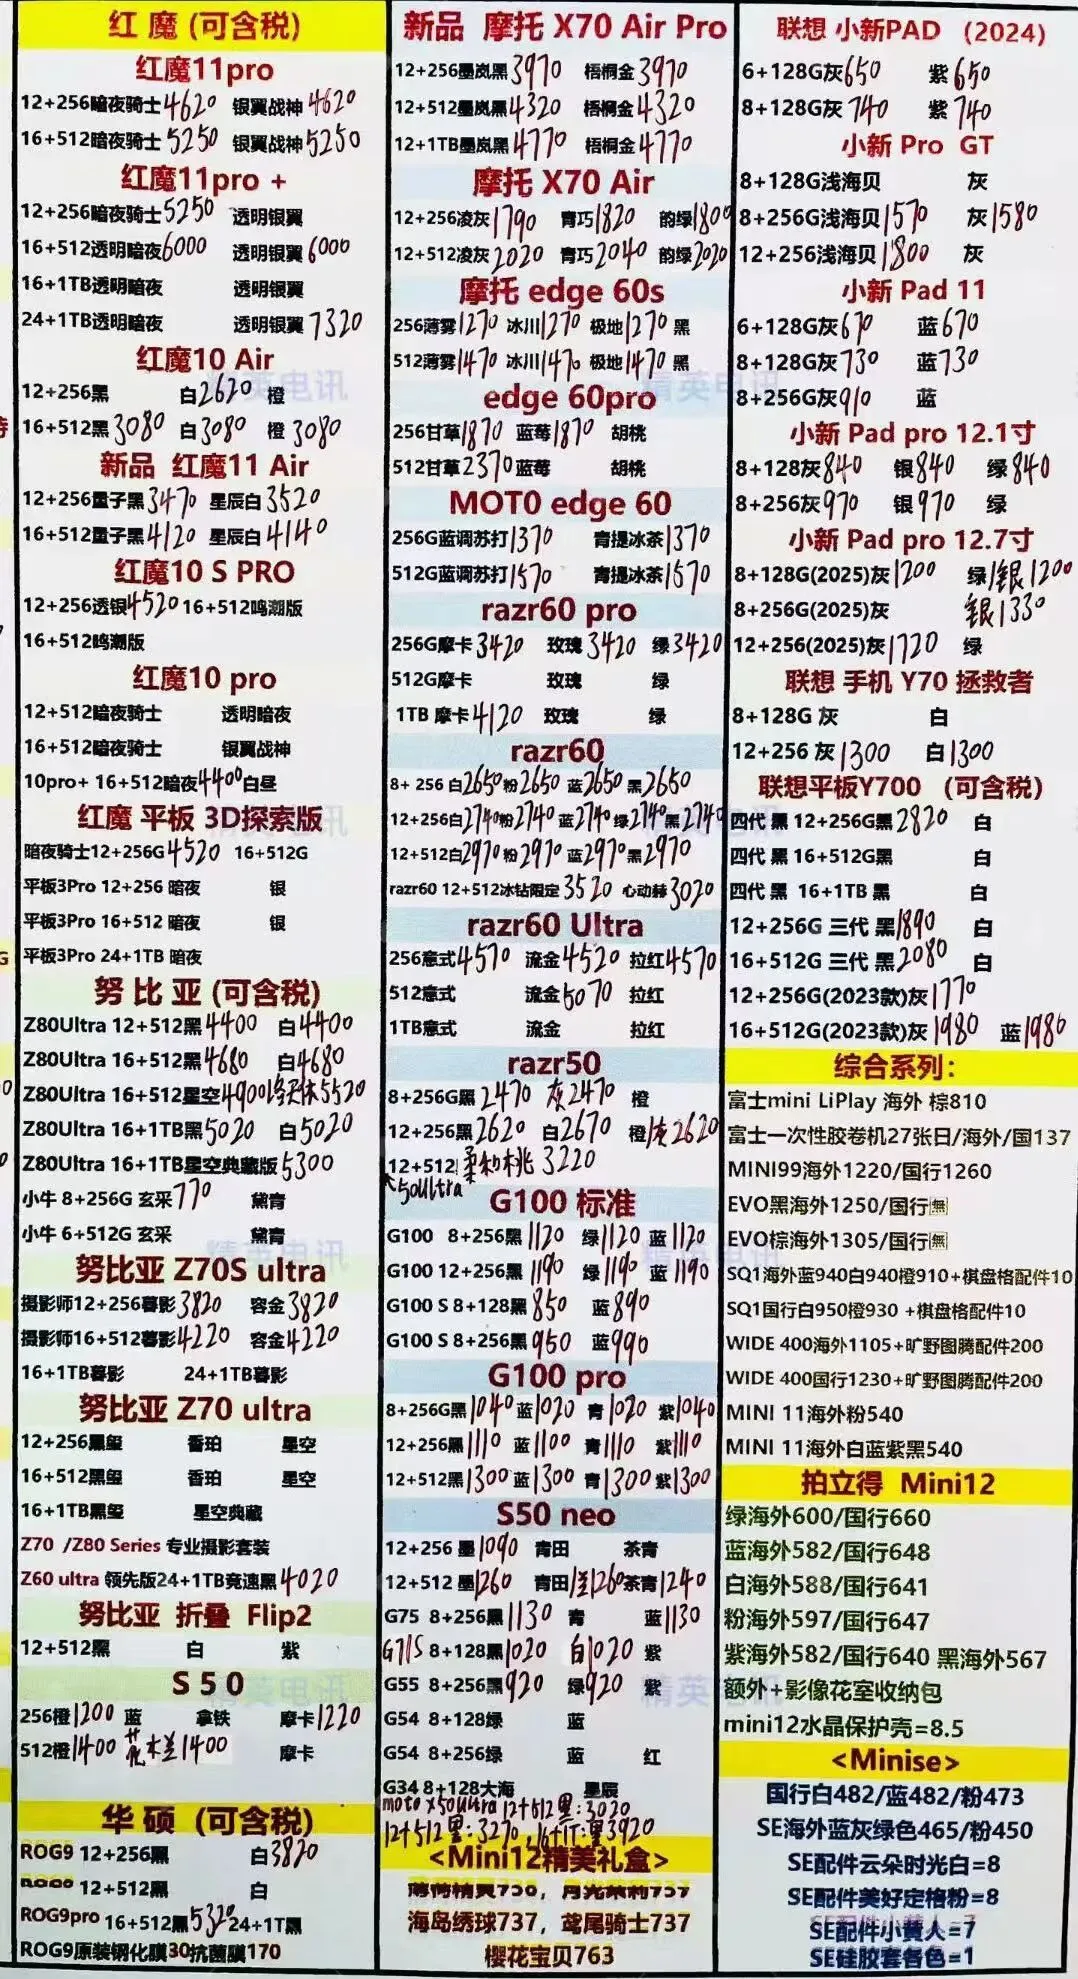 红 魔 (可含税)
红魔11pro
12+256暗夜骑士4620 银翼战神4620
16+512暗夜骑士5250 银翼战神5250
红魔11pro +
12+256暗夜骑士5250 透明银翼
16+512透明暗夜6000 透明银翼6000
16+1TB透明暗夜 透明银翼
24+1TB透明暗夜 透明银翼7320
红魔10 Air
12+256黑 白2620 橙
16+512黑3080 白3080 橙3080
新品 红魔11 Air
12+256量子黑3470 星辰白3520
16+512量子黑4120 星辰白4140
红魔10 S PRO
12+256透银4520 16+512鸣潮版
16+512鸣潮版
红魔10 pro
12+512暗夜骑士 透明暗夜
16+512暗夜骑士 银翼战神
10pro+ 16+512暗夜4400白昼
红魔 平板 3D探索版
暗夜骑士12+256G4520 16+512G
平板3Pro 12+256 暗夜 银
平板3Pro 16+512 暗夜 银
平板3Pro 24+1TB 暗夜
努 比 亚 (可含税)
Z80Ultra 12+512黑4400 白4400
Z80Ultra 16+512黑4680 白4680
Z80Ultra 16+512星空4900 5520
Z80Ultra 16+1TB黑5020 白5020
Z80Ultra 16+1TB星空典藏版5300
小牛 8+256G 玄采770 黛青
小牛 6+512G 玄采 黛青
努比亚 Z70S ultra
摄影师12+256暮影3820 容金3820
摄影师16+512暮影4220 容金4220
16+1TB暮影 24+1TB暮影
努比亚 Z70 ultra
12+256黑玺 香珀 星空
16+512黑玺 香珀 星空
16+1TB黑玺 星空典藏
Z70 /Z80 Series 专业摄影套装
Z60 ultra 领先版24+1TB竞速黑4020
努比亚 折叠 Flip2
12+512黑 白 紫
S 5 0
256橙1200 蓝 拿铁 摩卡1220
512橙1400 花木兰1400 摩卡
华 硕 (可含税)
ROG9 12+256黑 白3820
12+512黑 白
ROG9pro 16+512黑5320 24+1T黑
ROG9原装钢化膜30抗菌膜170
新品 摩托 X70 Air Pro
12+256墨岚黑3970 梧桐金3970
12+512墨岚黑4320 梧桐金4320
12+1TB墨岚黑4770 梧桐金4770
摩托 X70 Air
12+256凌灰1790 青巧1820 韵绿1800
12+512凌灰2020 青巧2040 韵绿2020
摩托 edge 60s
256薄雾1270 冰川1270 极地1270 黑
512薄雾1470 冰川1470 极地1470 黑
edge 60pro
256甘草1870 蓝莓1870 胡桃
512甘草2370 蓝莓 胡桃
MOTO edge 60
256G蓝调苏打1370 青提冰茶1370
512G蓝调苏打1570 青提冰茶1570
razr60 pro
256G摩卡3420 玫瑰3420 绿3420
512G摩卡 玫瑰 绿
1TB 摩卡4120 玫瑰 绿
razr60
8+ 256 白2650粉2650 蓝2650 黑2650
12+256白2740粉2740 蓝2740 绿2740黑2740
12+512白2970粉2970 蓝2970黑2970
razr60 12+512冰钻限定3520 心动赫3020
razr60 Ultra
256意式4570 流金4520 拉红4570
512意式 流金5070 拉红
1TB意式 流金 拉红
razr50
8+256G黑2470 灰2470 橙
12+256黑2620 白2670 橙 2620
12+512 柔和桃 3220
50ultra
G100 标准
G100 8+256黑1120 绿1120 蓝1120
G100 12+256黑1190 绿1190 蓝1190
G100 S 8+128黑850 蓝890
G100 S 8+256黑950 蓝990
G100 pro
8+256G黑1040 蓝1020 青1020 紫1040
12+256黑1110 蓝1100 青1110 紫1110
12+512黑1300 蓝1300 青1300 紫1300
S50 neo
12+256 墨1090 青田 茶青
12+512 墨1260 青田1260茶青1240
G75 8+256黑1130 青 蓝1130
G71S 8+128黑1020 白1020 紫
G55 8+256黑920 绿920 紫
G54 8+128绿 蓝
G54 8+256绿 蓝 红
G34 8+128大海 星辰
moto x50ultra 12+512黑:3020
12+512黑:3270, 16+1T:黑3920
<Mini12精美礼盒>
海岛绣球737, 鸢尾骑士737
樱花宝贝763
联想 小新PAD (2024)
6+128G灰650 紫650
8+128G灰740 紫740
小新 Pro GT
8+128G浅海贝 灰
8+256G浅海贝1570 灰1580
12+256浅海贝1800 灰
小新 Pad 11
6+128G灰670 蓝670
8+128G灰730 蓝730
8+256G灰910 蓝
小新 Pad pro 12.1寸
8+128灰840 银840 绿840
8+256灰970 银970 绿
小新 Pad pro 12.7寸
8+128G(2025)灰1200 绿/银1200
8+256G(2025)灰 银1330
12+256(2025)灰1720 绿
联想 手机 Y70 拯救者
8+128G 灰 白
12+256 灰1300 白1300
联想平板Y700 (可含税)
四代 黑 12+256G黑2820 白
四代 黑 16+512G黑 白
四代 黑 16+1TB 黑 白
12+256G 三代 黑1890 白
16+512G 三代 黑2080 白
12+256G(2023款)灰1770
16+512G(2023款)灰1980 蓝1980
综合系列:
富士mini LiPlay 海外 棕810
富士一次性胶卷机27张日/海外/国137
MINI99海外1220/国行1260
EVO黑海外1250/国行無
EVO棕海外1305/国行無
SQ1海外蓝940白940橙910+棋盘格配件10
SQ1国行白950橙930 +棋盘格配件10
WIDE 400海外1105+旷野图腾配件200
WIDE 400国行1230+旷野图腾配件200
MINI 11海外粉540
MINI 11海外白蓝紫黑540
拍立得 Mini12
绿海外600/国行660
蓝海外582/国行648
白海外588/国行641
粉海外597/国行647
紫海外582/国行640 黑海外567
额外+影像花室收纳包
mini12水晶保护壳=8.5
<Minise>
国行白482/蓝482/粉473
SE海外蓝灰绿色465/粉450
SE配件云朵时光白=8
SE配件美好定格粉=8
SE配件小黄人=7
SE硅胶套各色=1
精英电讯